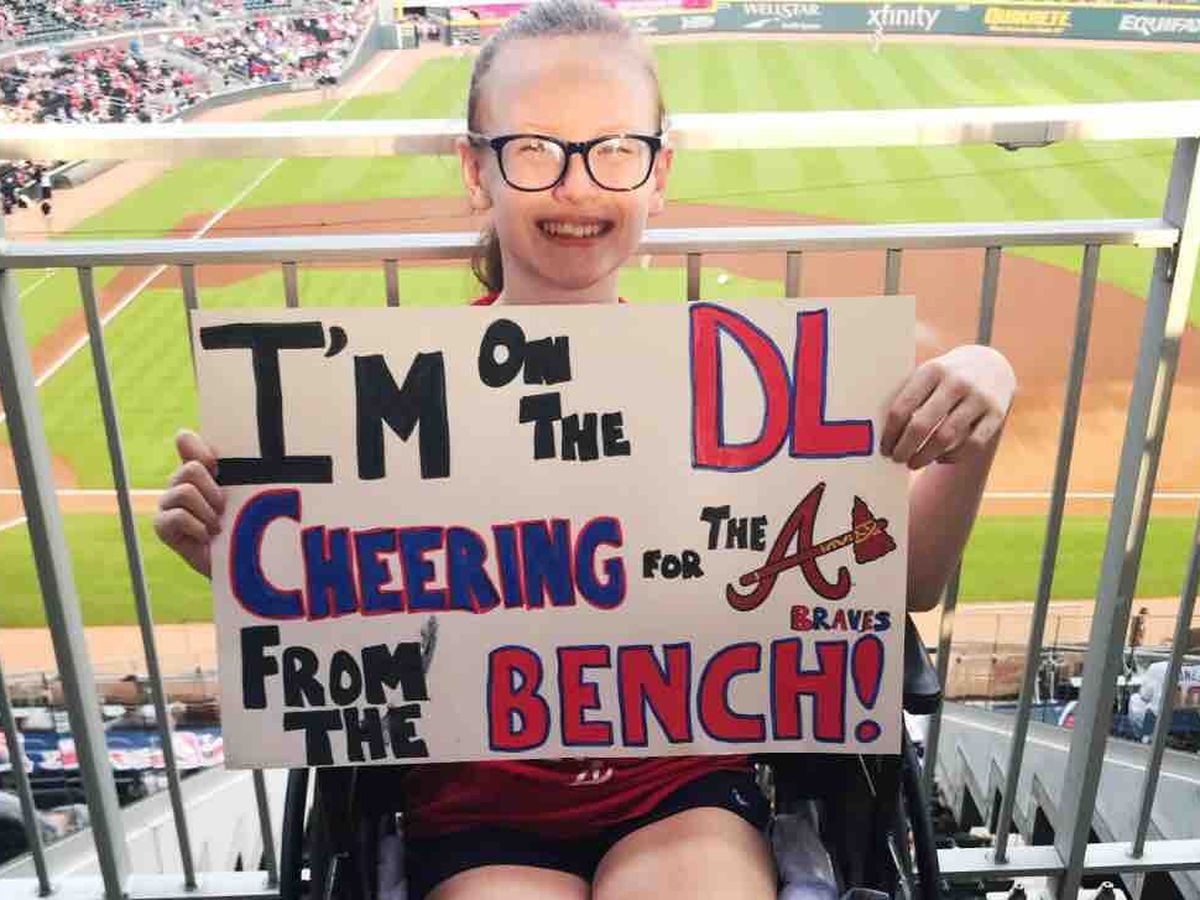 WELLSTAR xfinity QUIKRETE EQUIFAX
I'M ON THE DL
CHEERING FOR THE A
BRAVES
FROM THE BENCH!